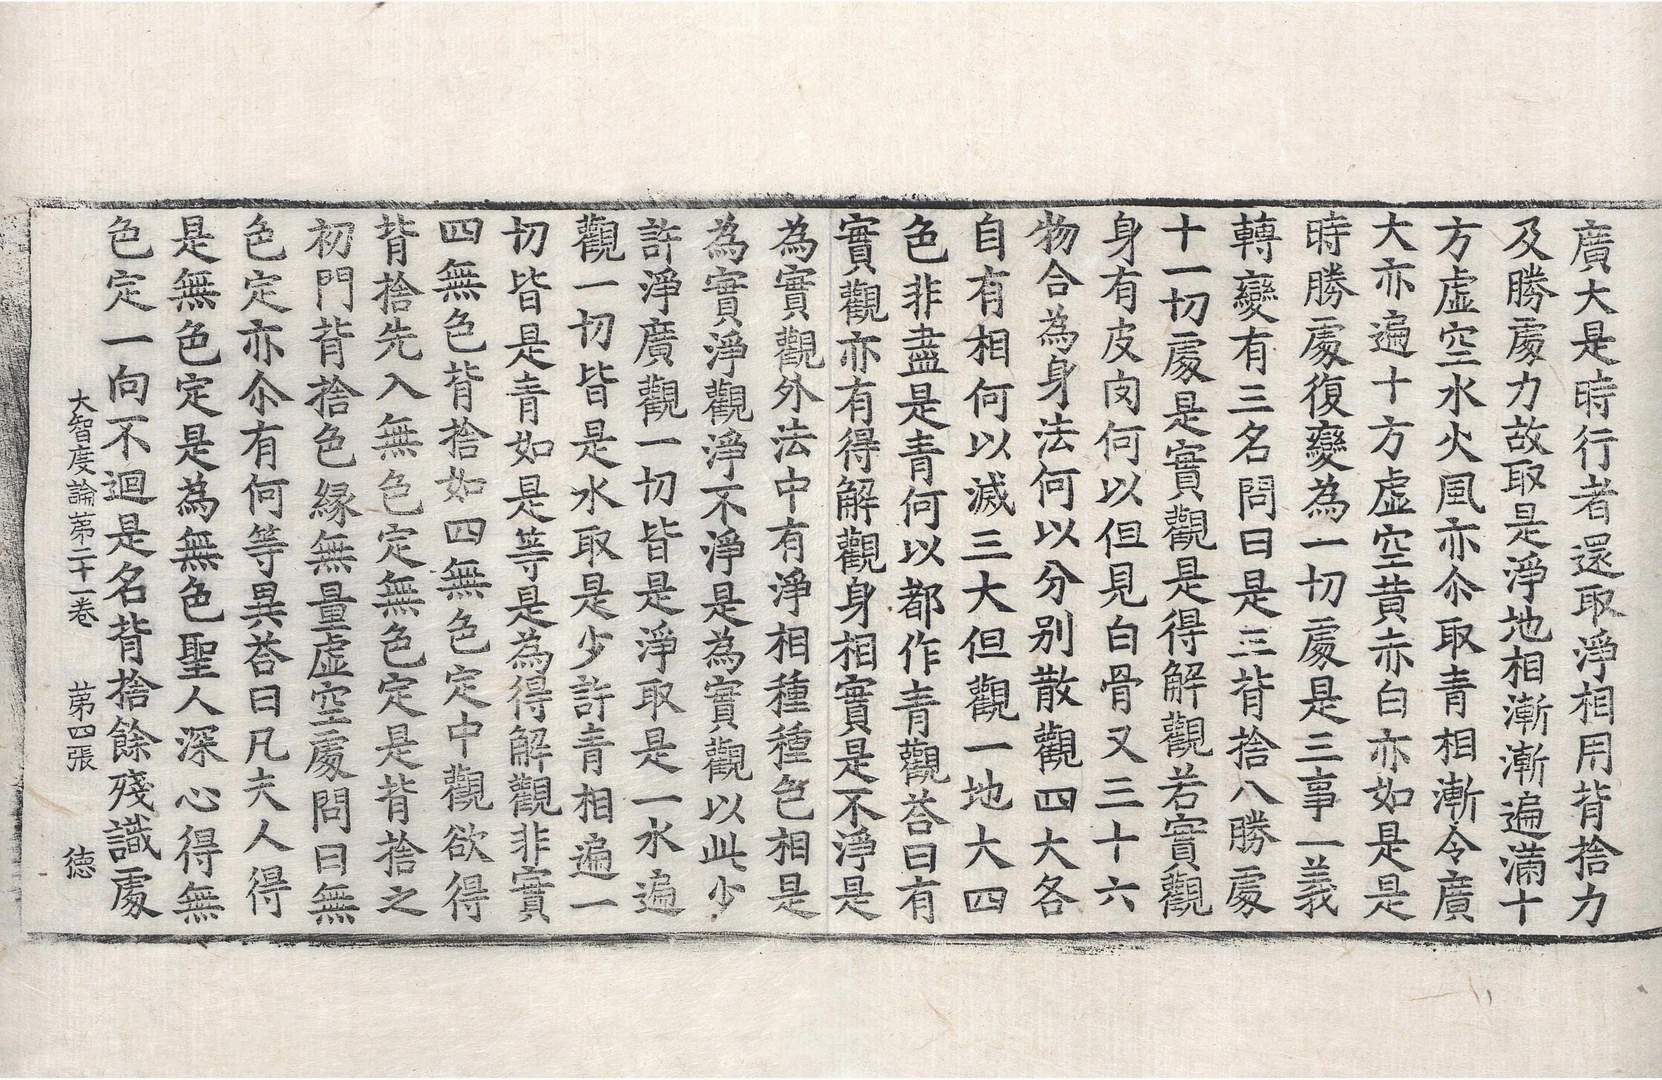 廣大是時行者還取淨相用背捨力
及勝處力故取是淨地相漸漸遍滿十
方虛空水火風亦尒取青相漸令廣
大亦遍十方虛空黃赤白亦如是是
時勝處復變為一切處是三事一義
轉變有三名問曰是三背捨八勝處
十一切處是實觀是得解觀若實觀
身有皮肉何以但見白骨又三十六
物合為身法何以分別散觀四大各
自有相何以滅三大但觀一地大四
色非盡是青何以都作青觀荅曰有
實觀亦有得解觀身相實是不淨是
為實觀外法中有淨相種種色相是
為實淨觀淨不淨是為實觀以此少
許淨廣觀一切皆是淨取是一水遍
觀一切皆是水取是少許青相遍一
切皆是青如是等是為得解觀非實
四無色背捨如四無色定中觀欲得
背捨先入無色定無色定是背捨之
初門背捨色緣無量虛空處問曰無
色定亦尒有何等異荅曰凡夫人得
是無色定是為無色聖人深心得無
色定一向不迴是名背捨餘殘識處
大智度論第二十一卷 第四張 德